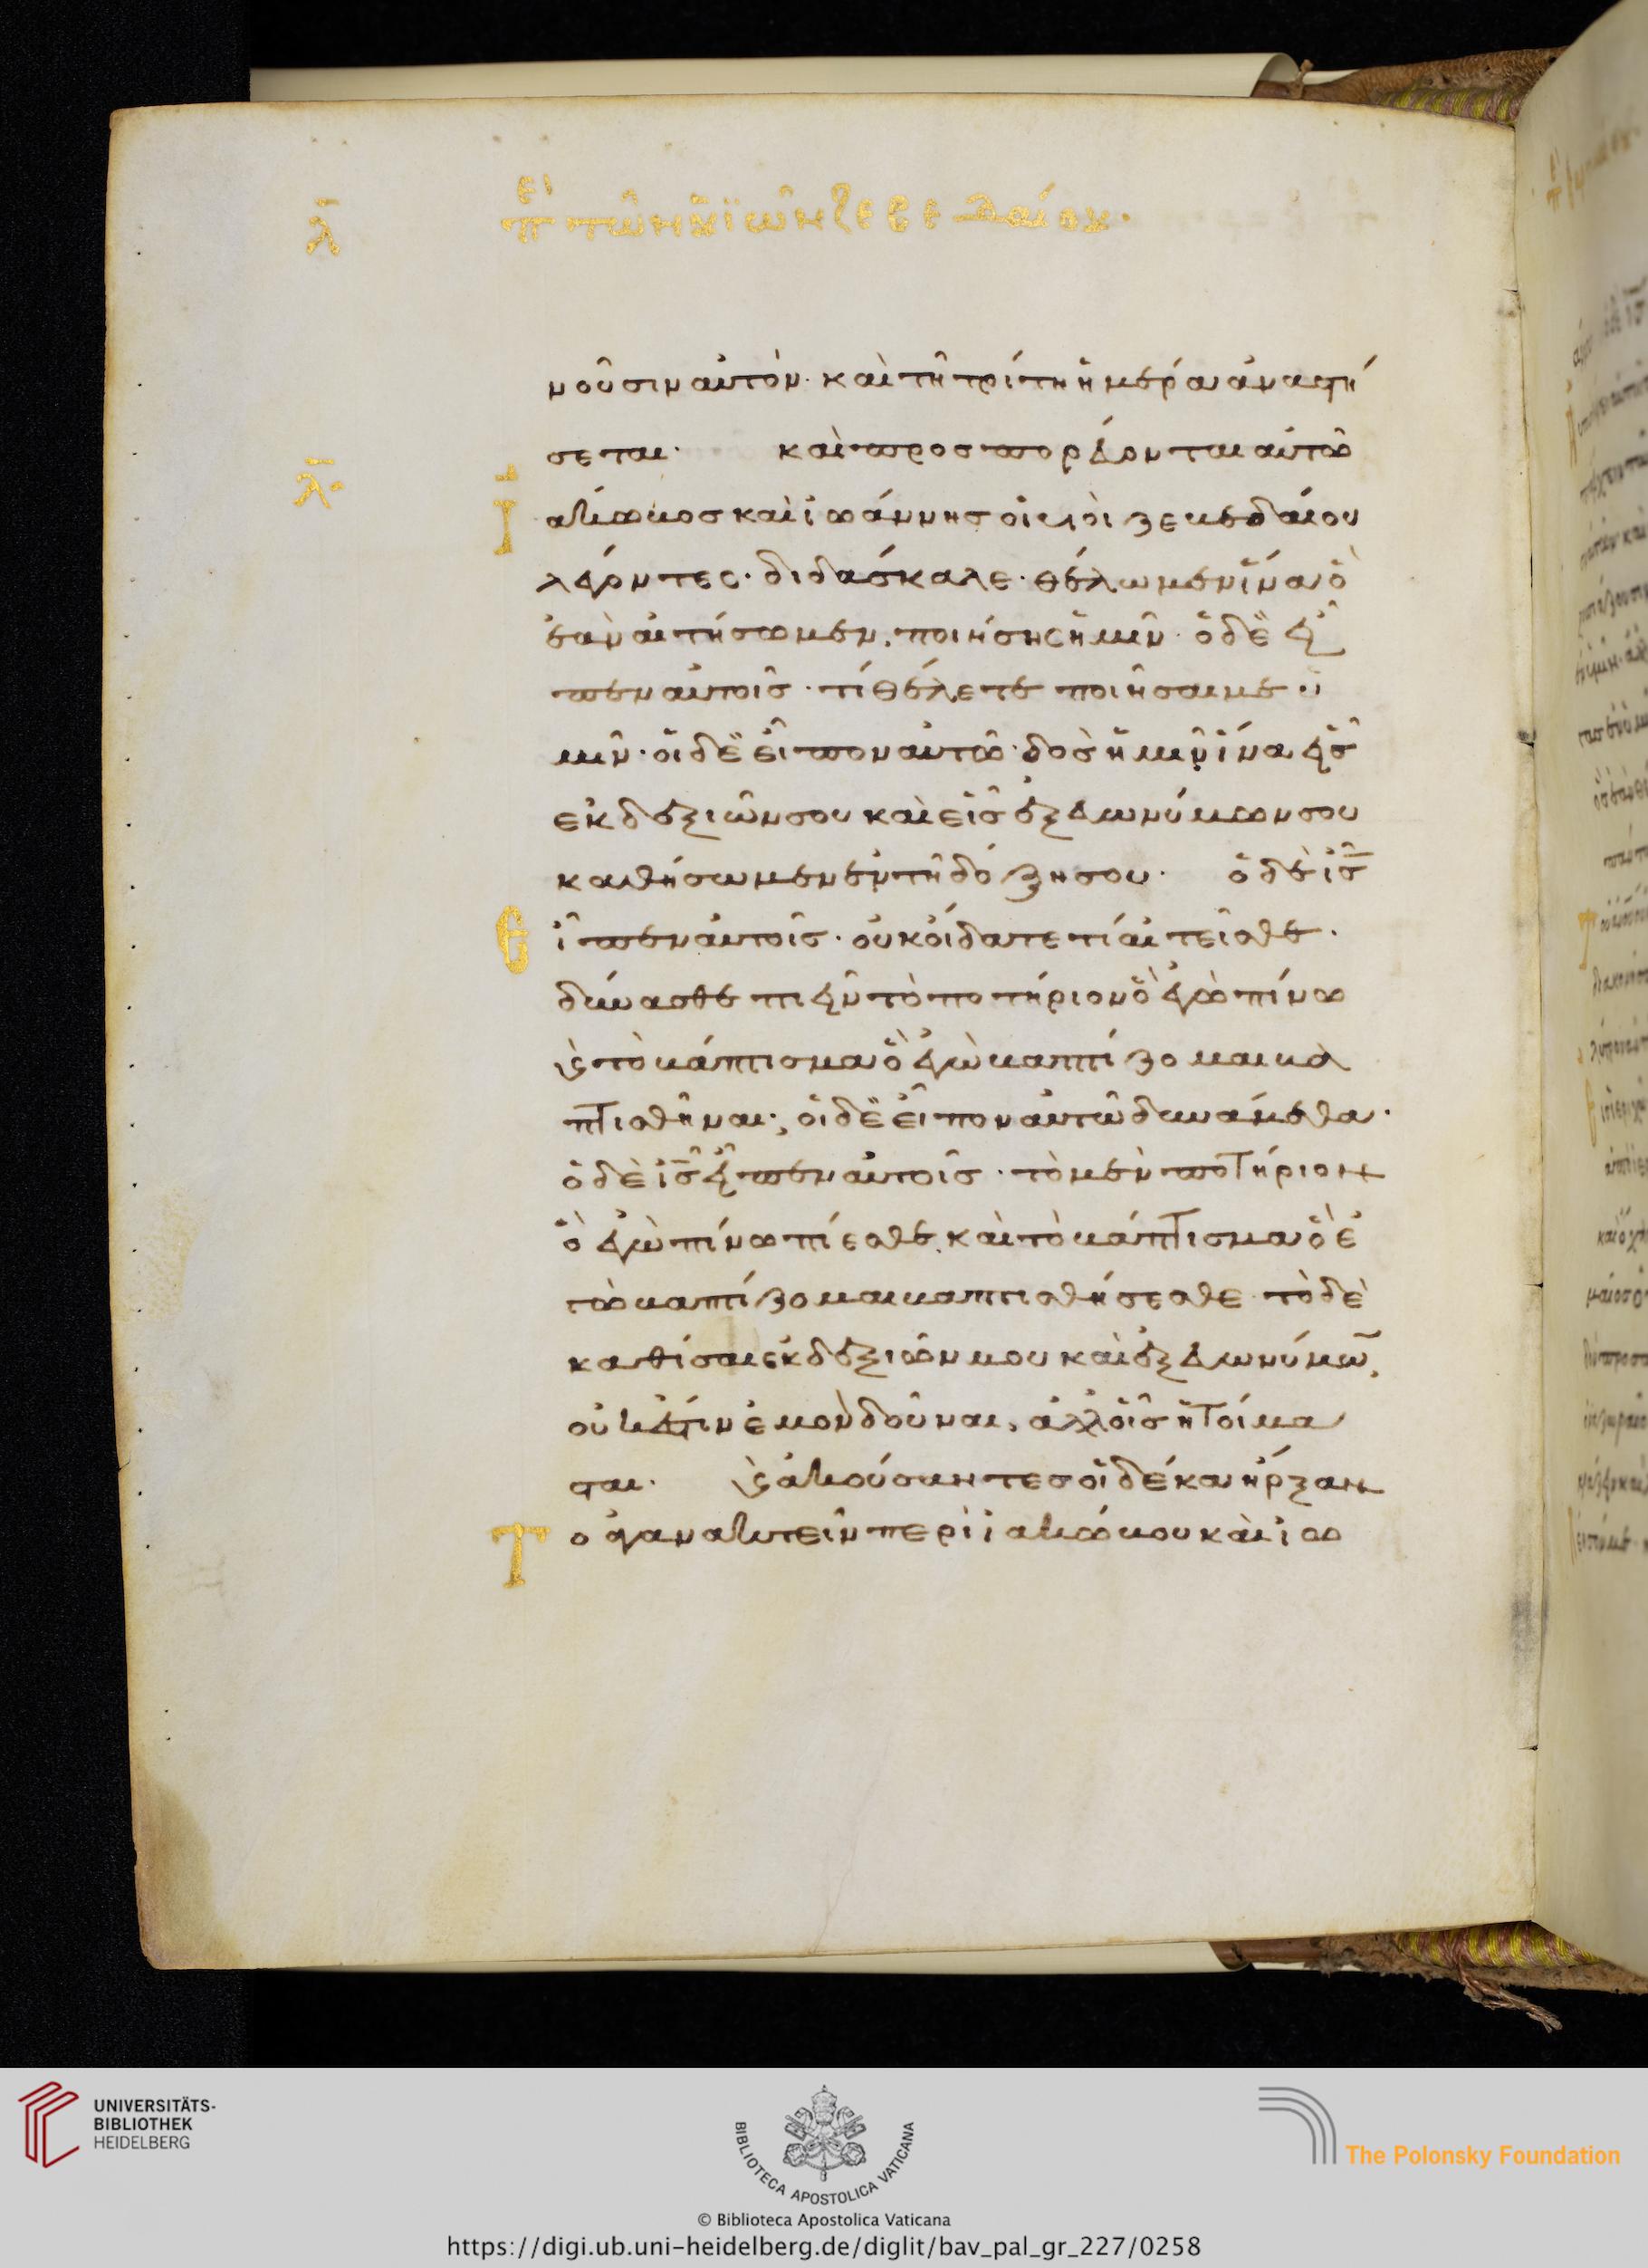 λ̅
περὶ τῶν ῡῑῶν ζεβεδαίου·
νοῦσιν αὐτόν· καὶ τῆ τρίτη ἡμέρα ἀναστή
σεται· καὶ προσπορεύονται αὐτῶ
λ̅·
Ἰ
ακωβος καὶ ἰωάννης οἱ υἱοὶ ζεβεδαίου
λέγοντες· διδάσκαλε· θέλωμεν ἵνα ὃ
ἐὰν αἰτήσωμεν, ποιήσης ἡμῖν· ὁ δὲ εἶ
πεν αὐτοῖς· τί θέλετε ποιῆσαι με ὑ
μῖν· οἱ δὲ εἶπον αὐτῶ· δὸς ἡμῖν ἵνα εἷς
ἐκ δεξιῶν σου καὶ εἷς ἐξ εὐωνύμων σου
καθήσωμεν ἐν τῆ δόξη σου· ὁ δὲ ἰ̅ς̅
Ε
ἶπεν αὐτοῖς· οὐκ οἴδατε τί αἰτεῖσθε·
δύνασθε πιεῖν τὸ ποτήριον ὃ ἐγὼ πίνω
ϗ τὸ βάπτισμα ὃ ἐγὼ βαπτίζομαι βα
πτισθῆναι; οἱ δὲ εἶπον αὐτῶ δυνάμεθα·
ὁ δὲ ἰ̅ς̅ εἶπεν αὐτοῖς· τὸ μὲν ποτήριον
ὃ ἐγὼ πίνω πίεσθε, καὶ τὸ βάπτισμα ὃ ἐ
γὼ βαπτίζομαι βαπτισθήσεσθε· τὸ δὲ
καθίσαι ἐκ δεξιῶν μου καὶ ἐξ εὐωνύμω̅,
οὐκ ἔστιν ἐμὸν δοῦναι, ἀλλ' οἷς ἡτοίμα
σται· ϗ ἀκούσαντες οἱ δέκα ἤρξαν
Τ
ο ἀγανακτεῖν περὶ ἰακώβου καὶ ἰω
UNIVERSITÄTS-
BIBLIOTHEK
HEIDELBERG
BIBLIOTECA APOSTOLICA VATICANA
The Polonsky Foundation
© Biblioteca Apostolica Vaticana
https://digi.ub.uni-heidelberg.de/diglit/bav_pal_gr_227/0258